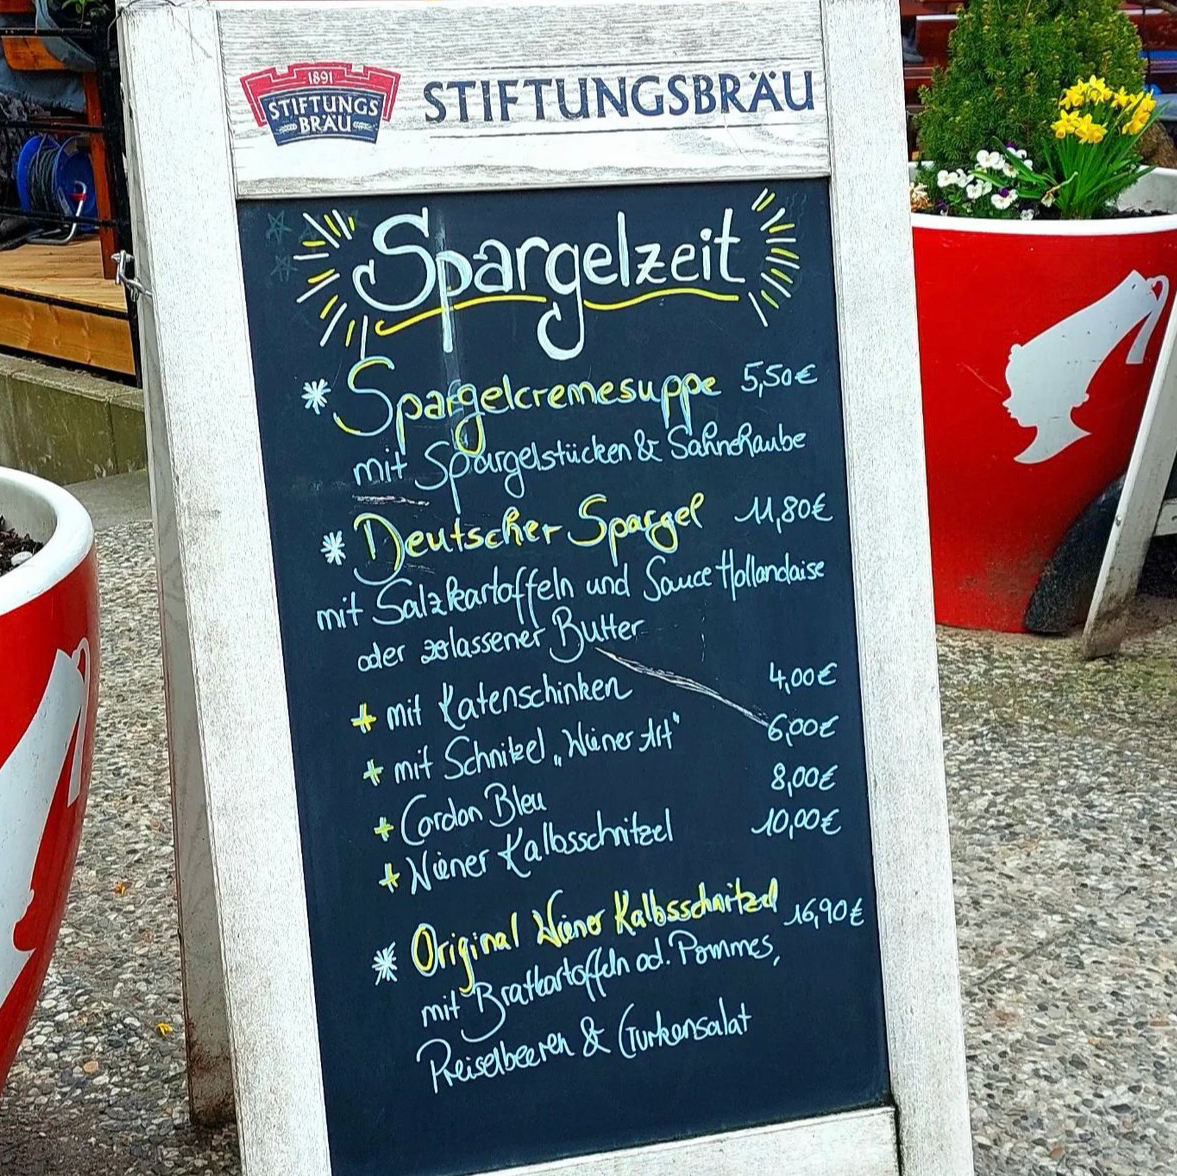 1891
STIFTUNGS
BRÄU
STIFTUNGSBRÄU
Spargelzeit
* Spargelcremesuppe 5,50€
mit Spargelstücken & Sahnehaube
* Deutscher Spargel 11,80€
mit Salzkartoffeln und Sauce Hollandaise
oder zerlassener Butter
+ mit Katenschinken 4,00€
+ mit Schnitzel „Wiener Art" 6,00€
+ Cordon Bleu 8,00€
+ Wiener Kalbsschnitzel 10,00€
* Original Wiener Kalbsschnitzel 16,90€
mit Bratkartoffeln od. Pommes,
Preiselbeeren & Gurkensalat